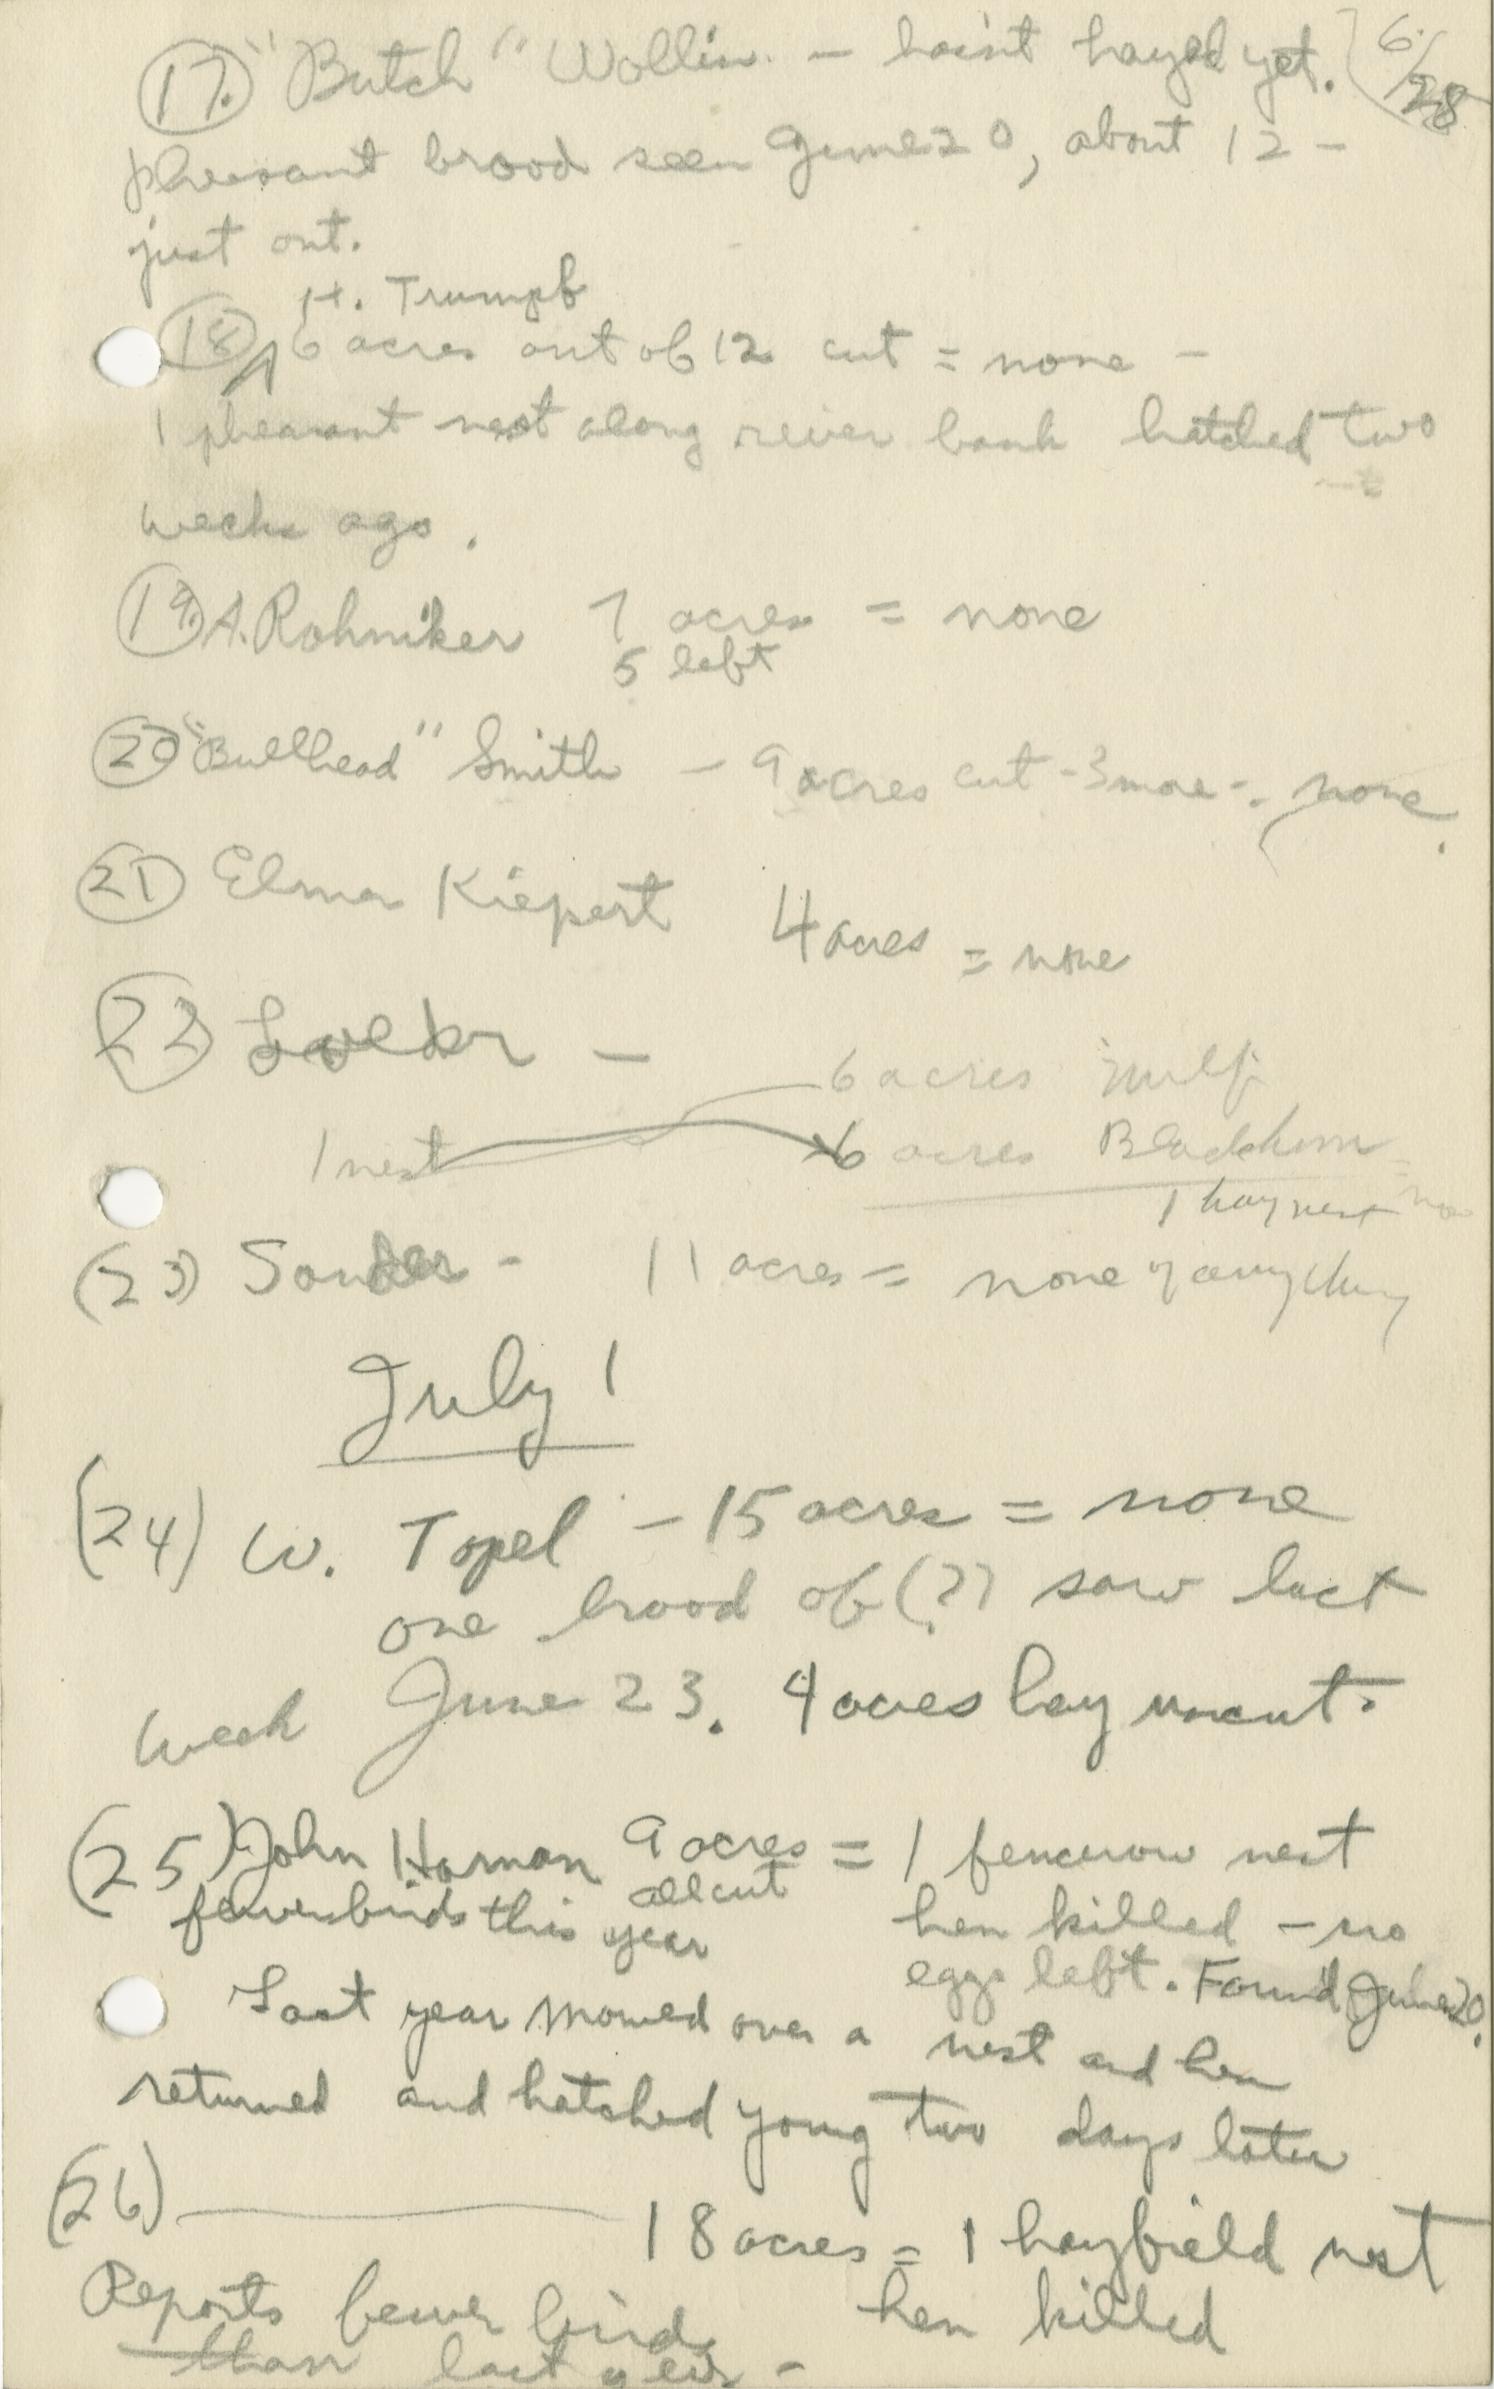 (17.) "Butch" Wollin. - hasn't hayed yet. 6/28
pheasant brood seen June 20, about 12 -
just out.
H. Trumpf
(18) 6 acres out of 12 cut = none -
1 pheasant nest along river bank hatched two
weeks ago.
(19.) A. Rohniker 7 acres = none
5 left
(20) "Bullhead" Smith - 9 acres cut - 3 more - none.
(21) Elmer Kiepert 4 acres = none
(22) -
6 acres
1 nest 6 acres
1 hay nest
(23) - 11 acres = none of anything
July 1
(24) W. Topel - 15 acres = none
one brood of (?) saw last
week June 23. 4 acres hay uncut.
(25) John Homan 9 acres = 1 fencerow nest
all cut
fewer birds this year
hen killed - no
eggs left. Found June 20.
Last year mowed over a nest and hen
returned and hatched young two days later
(26) 18 acres = 1 hayfield nest
Reports fewer birds hen killed
than last year -